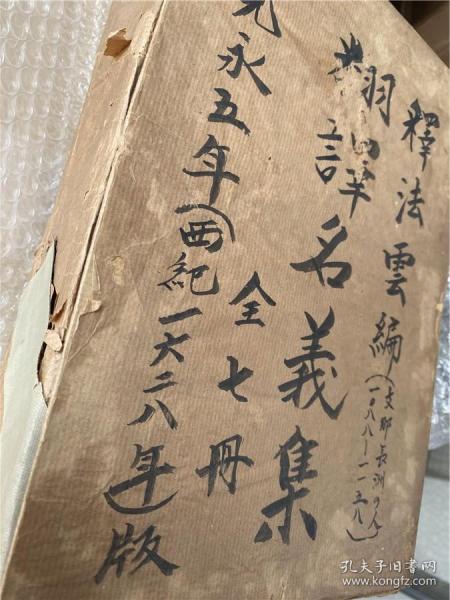 釋法雲編(支那長洲の人
一〇八八―一一五八)
翻譯名義集
全七冊
永五年(西紀一六二八年)版
孔夫子旧书网
www.kongfz.com